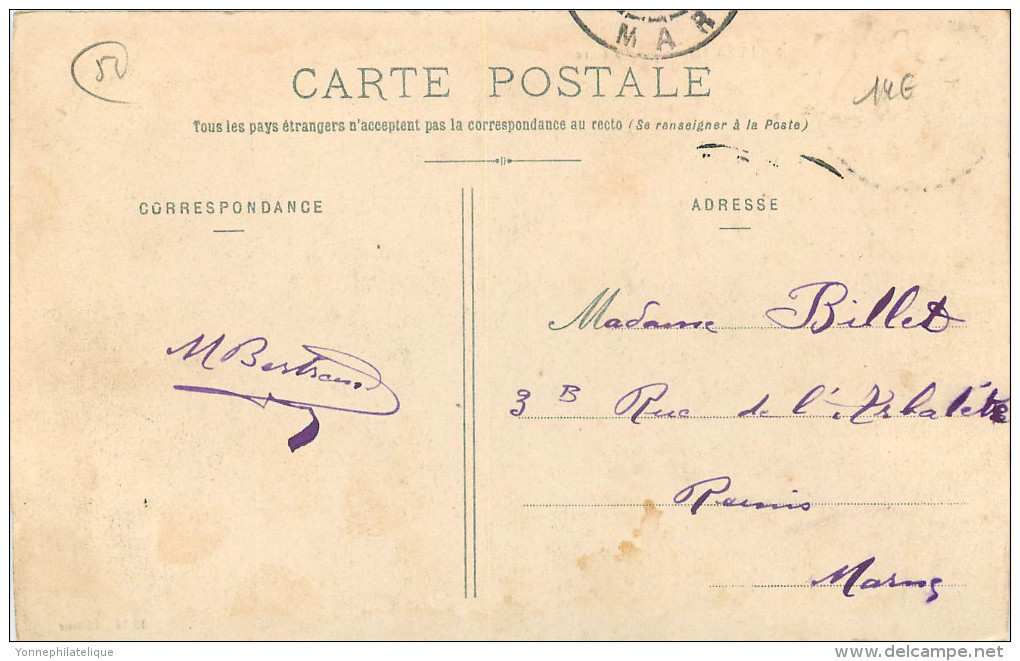 MAR
50
14€
CARTE POSTALE
Tous les pays étrangers n'acceptent pas la correspondance au recto (Se renseigner à la Poste)
CORRESPONDANCE
M Bertrand
ADRESSE
Madame Billet
3 B Rue de l'Arbalète
Reims
Marne
Yonnephilatelique
www.delcampe.net